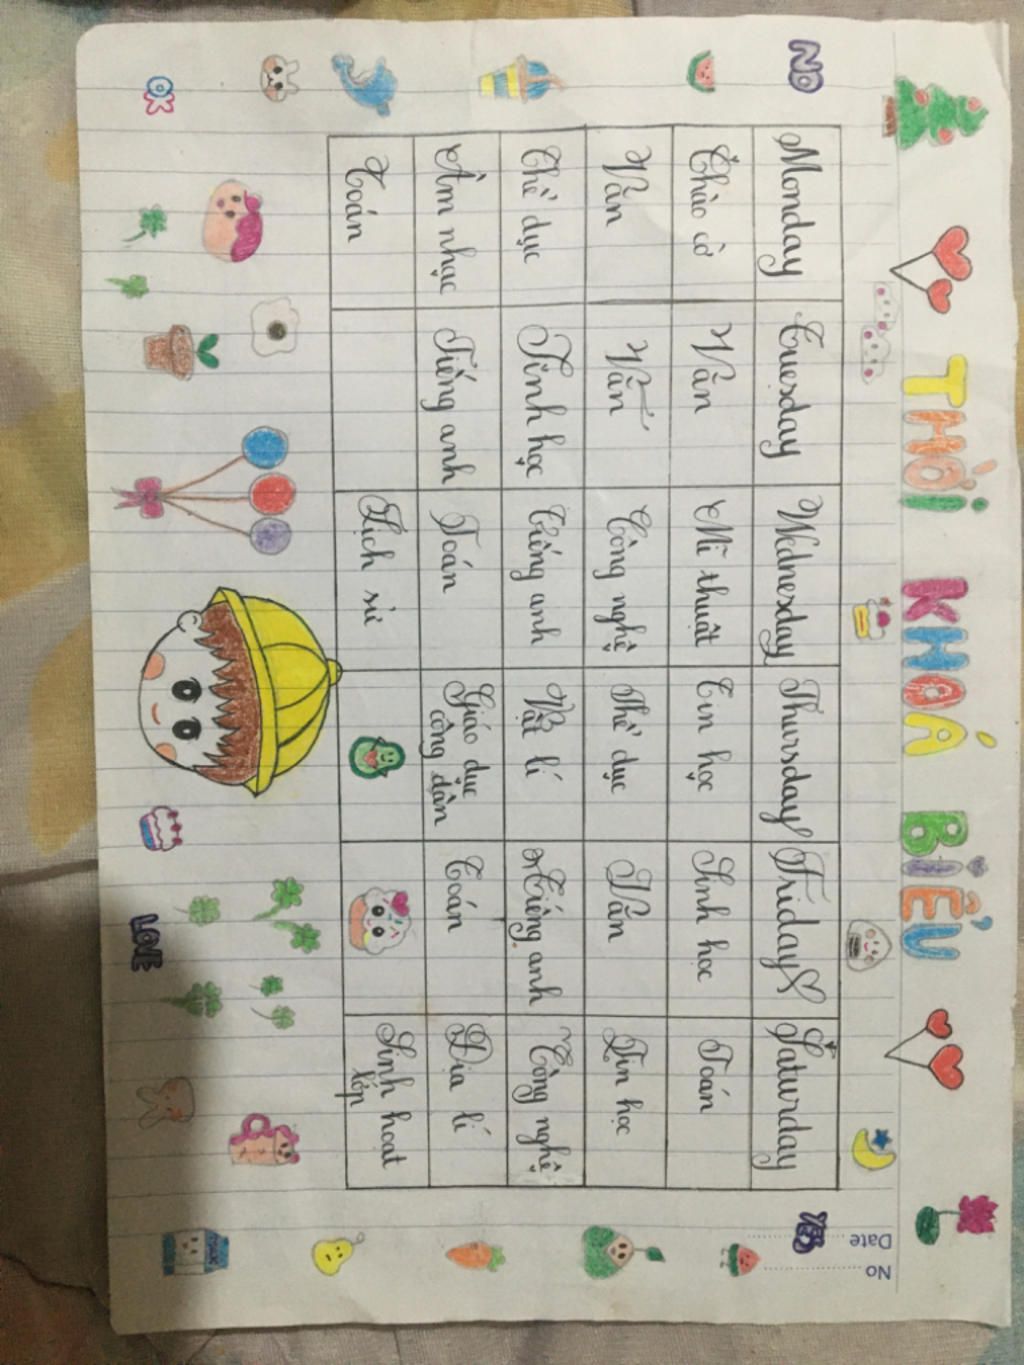 THỜI KHOÁ BIỂU
NO
YES
No
Date
Monday Tuesday Wednesday Thursday Friday Saturday
Chào cờ Văn Mĩ thuật Tin học Sinh học Toán
Văn Văn Công nghệ Thể dục Văn Tin học
Thể dục Sinh học Tiếng anh Vật lí Tiếng anh Công nghệ
Âm nhạc Tiếng anh Toán Giáo dục công dân Toán Địa lí
Toán Lịch sử Sinh hoạt lớp
OK
LOVE